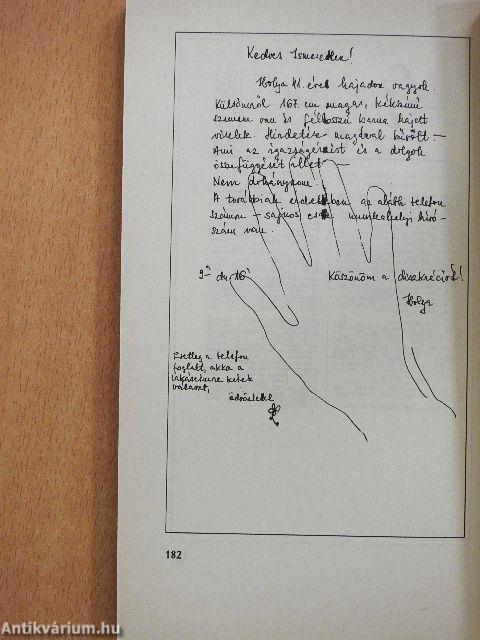 Kedves Ismeretlen!
Ibolya 41 éves hajadon vagyok.
Külsőmről 167 cm magas, kékszínű
szemem van és félhosszú barna hajat
viselek. Hirdetése magával bűvölt –
Ami az igazságérzést és a dolgok
összefüggését illeti –
Nem dohányzom.
A továbbiak érdekében az alábbi telefon
számom – sajnos csak munkahelyi hívó-
szám van.
9- du. 16
Köszönöm a diszkréciót!
Ibolya
Esetleg a telefon
foglalt, akkor a
lakáscímre kérek
választ,
üdvözlettel
182
Antikvárium.hu